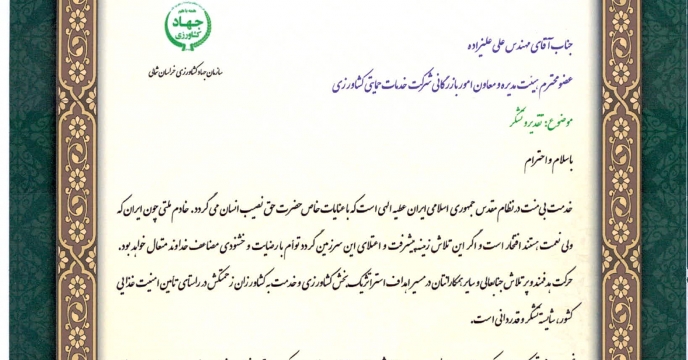 همه با هم
جهاد
کشاورزی
سازمان جهاد کشاورزی خراسان شمالی
جناب آقای مهندس علی علیزاده
عضو محترم هیئت مدیره و معاون امور بازرگانی شرکت خدمات حمایتی کشاورزی
موضوع: تقدیر و تشکر
با سلام و احترام
خدمت بی منت در نظام مقدس جمهوری اسلامی ایران عطیه الهی است که با عنایات خاص حضرت حق نصیب انسان می گردد. خادم ملتی چون ایران که
ولی نعمت هستند افتخار است و اگر این تلاش زمینه پیشرفت و اعتلای این سرزمین گردد توأم با رضایت و خشنودی مضاعف خداوند متعال خواهد بود.
حرکت هدفمند و پر تلاش جنابعالی و سایر همکارانتان در مسیر اهداف استراتژیک بخش کشاورزی و خدمت به کشاورزان زحمتکش در راستای تامین امنیت غذایی
کشور، شایسته تشکر و قدردانی است.